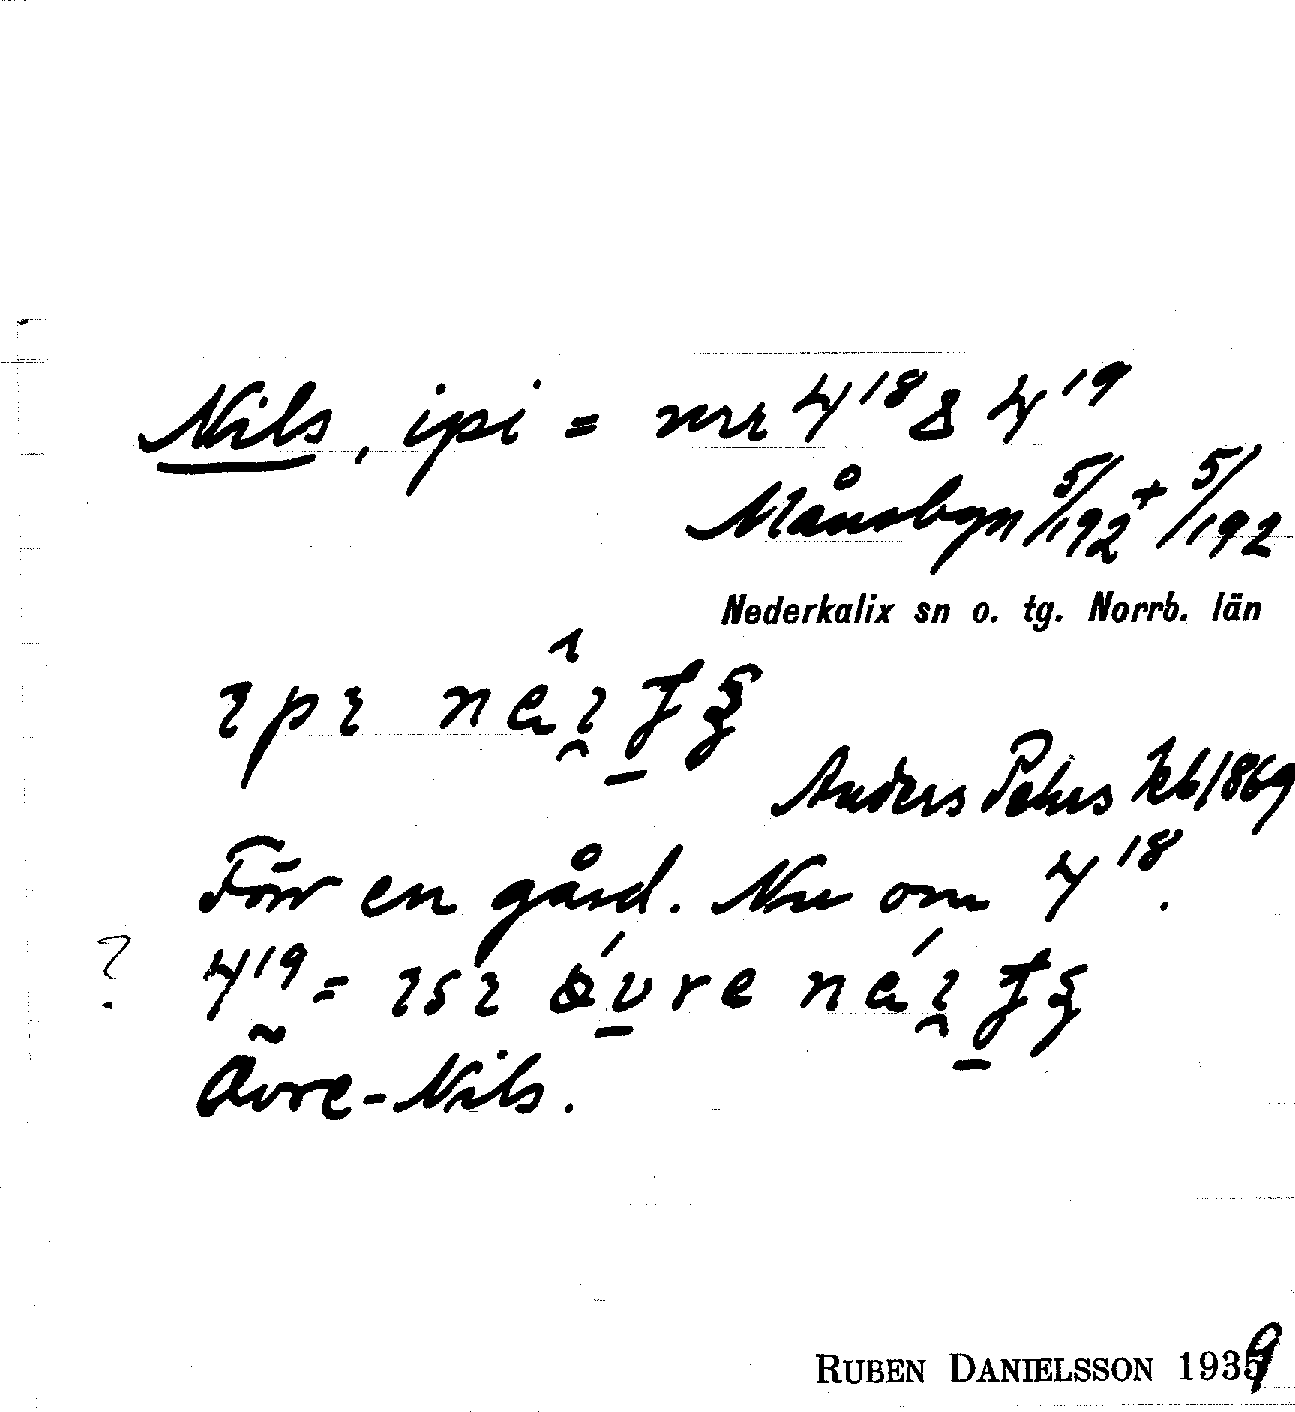 Nils, ipi = nrr 4¹⁸ & 4¹⁹
Månsbyn 5/192 + 5/192
Nederkalix sn o. tg. Norrb. län
Anders Pehrs feb 1869
Förr en gård. Nu om 4¹⁸.
? 4¹⁹ =
Övre-Nils.
RUBEN DANIELSSON 1939